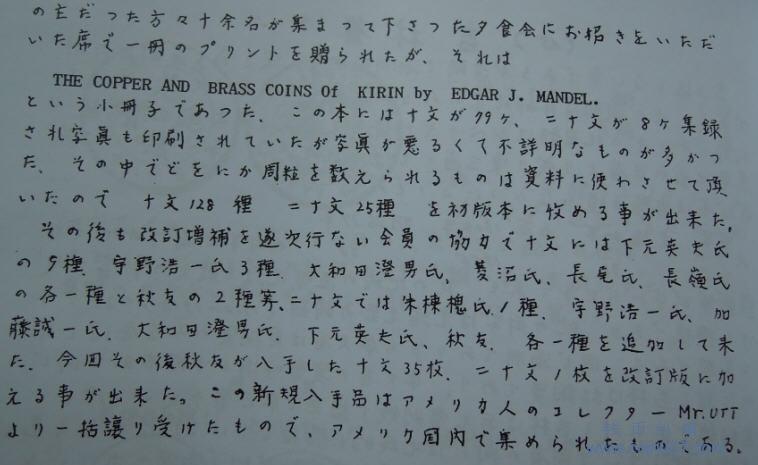 の主だった方々十余名が集まって下さった夕食会にお招きをいただ
いた席で一冊のプリントを贈られたが、それは
THE COPPER AND BRASS COINS Of KIRIN by EDGAR J. MANDEL.
という小冊子であった、この本には十文が79ヶ、二十文が8ヶ集録
され写真も印刷されていたが写眞が悪るくて不詳明なものが多かっ
た、その中でどをにか周粒を数えられるものは資料に使わさせて頂
いたので 十文128種 二十文25種 を初版本に牧める事が出来た。
その後も改訂増補を逐次行ない会員の協力で十文には下元英夫氏
の5種、宇野浩一氏3種、大和田澄男氏、菱沼氏、長尾氏、長嶺氏
の各一種と秋友の2種等、二十文では朱棟槐氏1種、宇野浩一氏、加
藤誠一氏、大和田澄男氏、下元英夫氏、秋友、各一種を追加して来
た、今回その後秋友が入手した十文35枚、二十文1枚を改訂版に加
える事が出来た。この新規入手品はアメリカ人のコレクターMr.UTT
より一括譲り受けたもので、アメリカ国内で集められたものである。